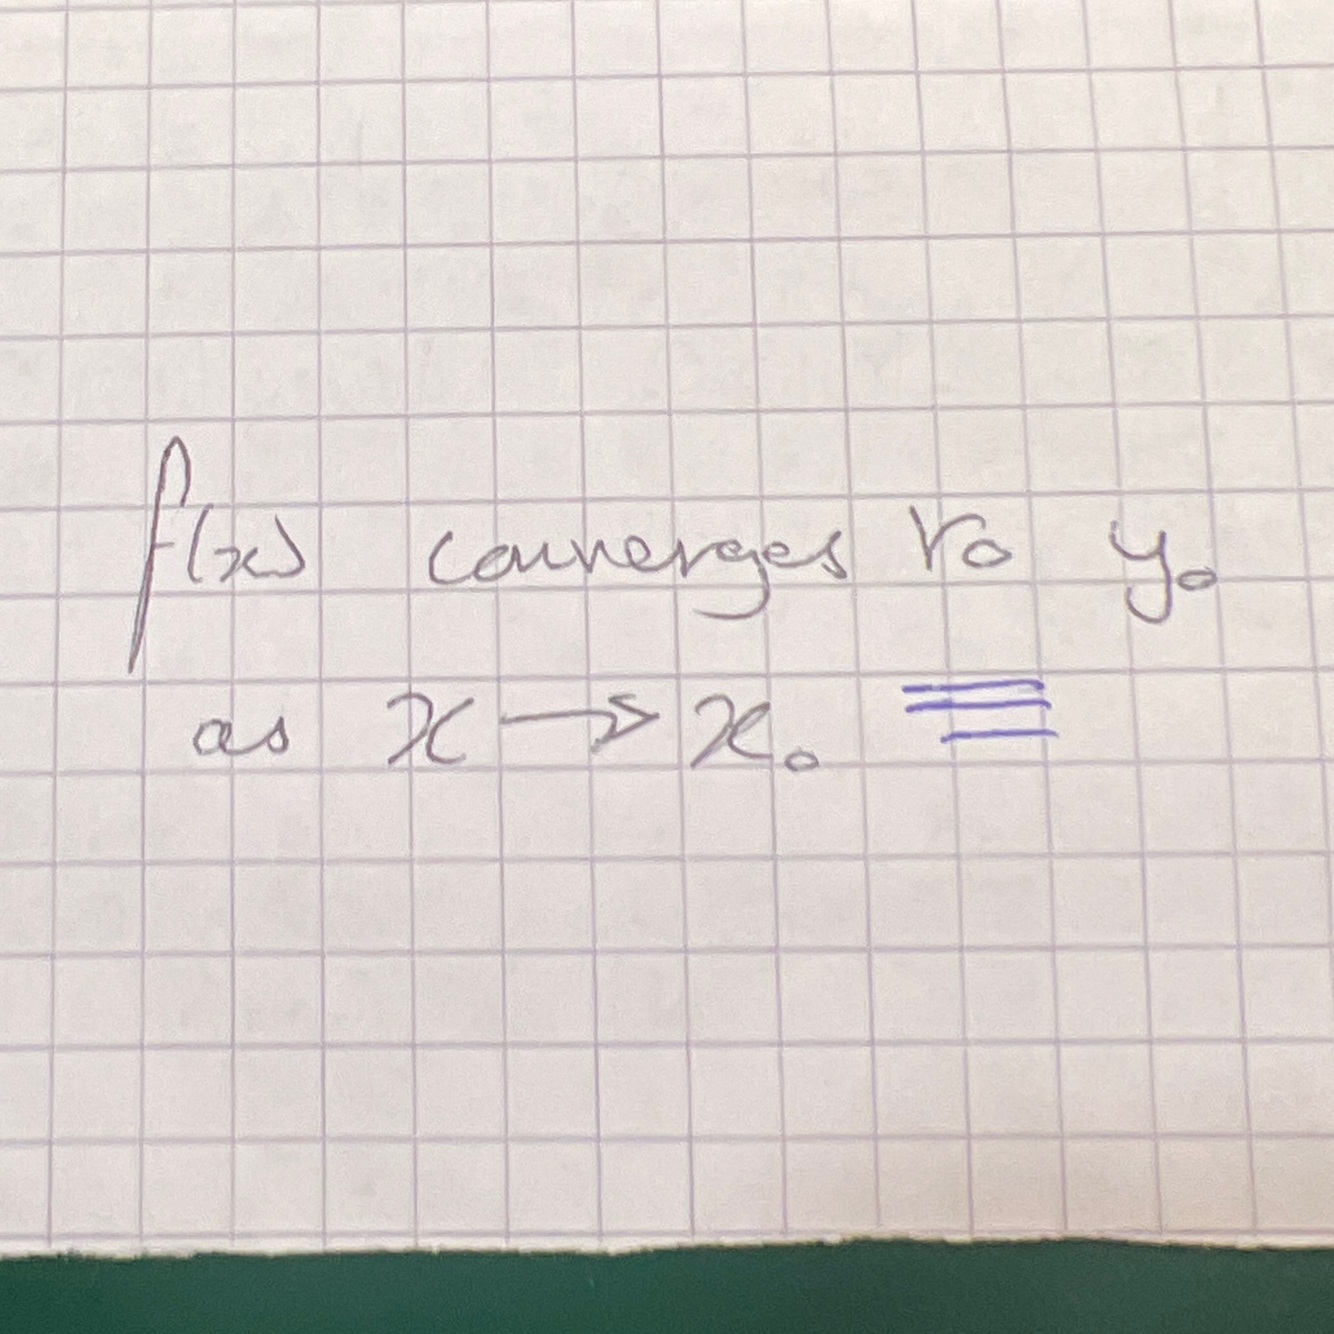 f(x) converges to y₀
as x → x₀ ≡